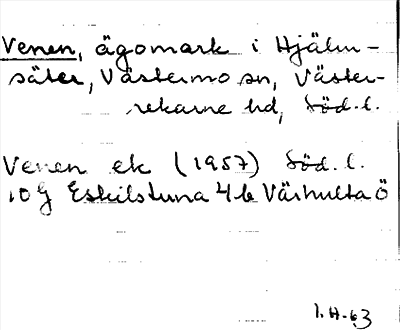 Venen, ägomark i Hjälm-
säter, Västermo sn, Väster-
rekarne hd, Söd. l.
Venen ek (1957) Söd. l.
10G Eskilstuna 4b Värhulta Ö
1.4.63